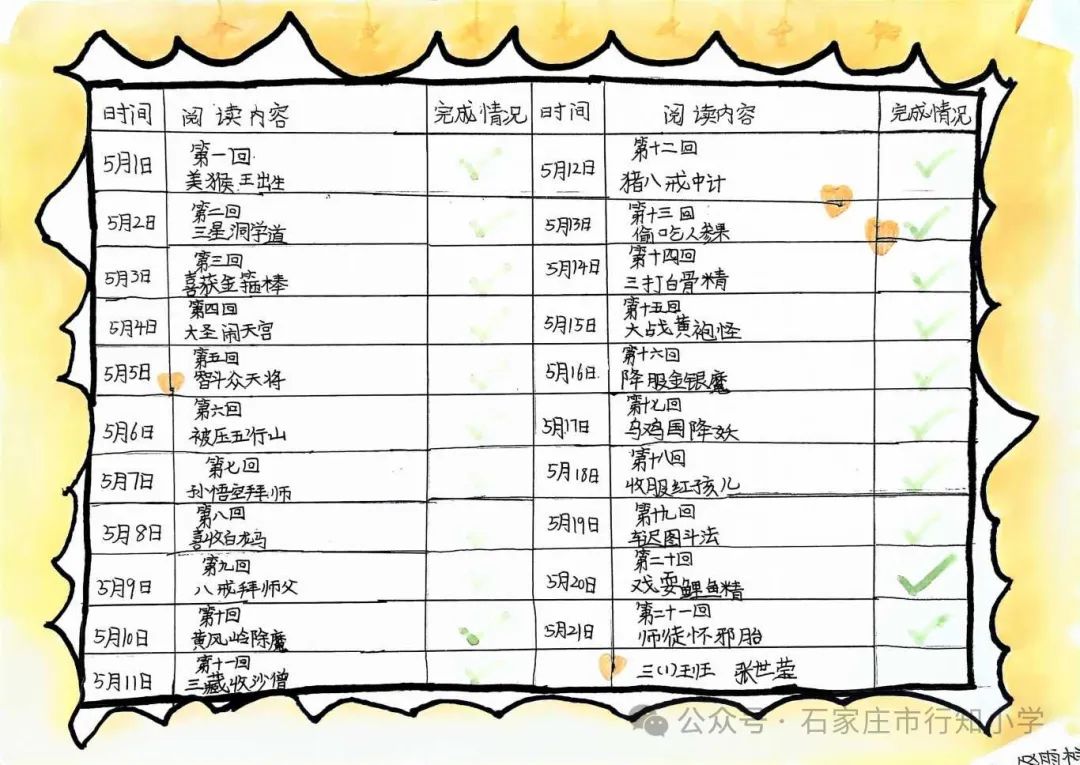 时间 阅读内容 完成情况 时间 阅读内容 完成情况
5月1日 第一回
美猴王出生
5月2日 第二回
三星洞学道
5月3日 第三回
喜获金箍棒
5月4日 第四回
大圣闹天宫
5月5日 第五回
智斗众天将
5月6日 第六回
被压五行山
5月7日 第七回
孙悟空拜师
5月8日 第八回
喜收白龙马
5月9日 第九回
八戒拜师父
5月10日 第十回
黄风岭除魔
5月11日 第十一回
三藏收沙僧
5月12日 第十二回
猪八戒中计
5月13日 第十三回
偷吃人参果
5月14日 第十四回
三打白骨精
5月15日 第十五回
大战黄袍怪
5月16日 第十六回
降服金银魔
5月17日 第十七回
乌鸡国降妖
5月18日 第十八回
收服红孩儿
5月19日 第十九回
车迟图斗法
5月20日 第二十回
戏耍鲤鱼精
5月21日 第二十一回
师徒怀邪胎
三(1)班 张世莹
公众号·石家庄市行知小学